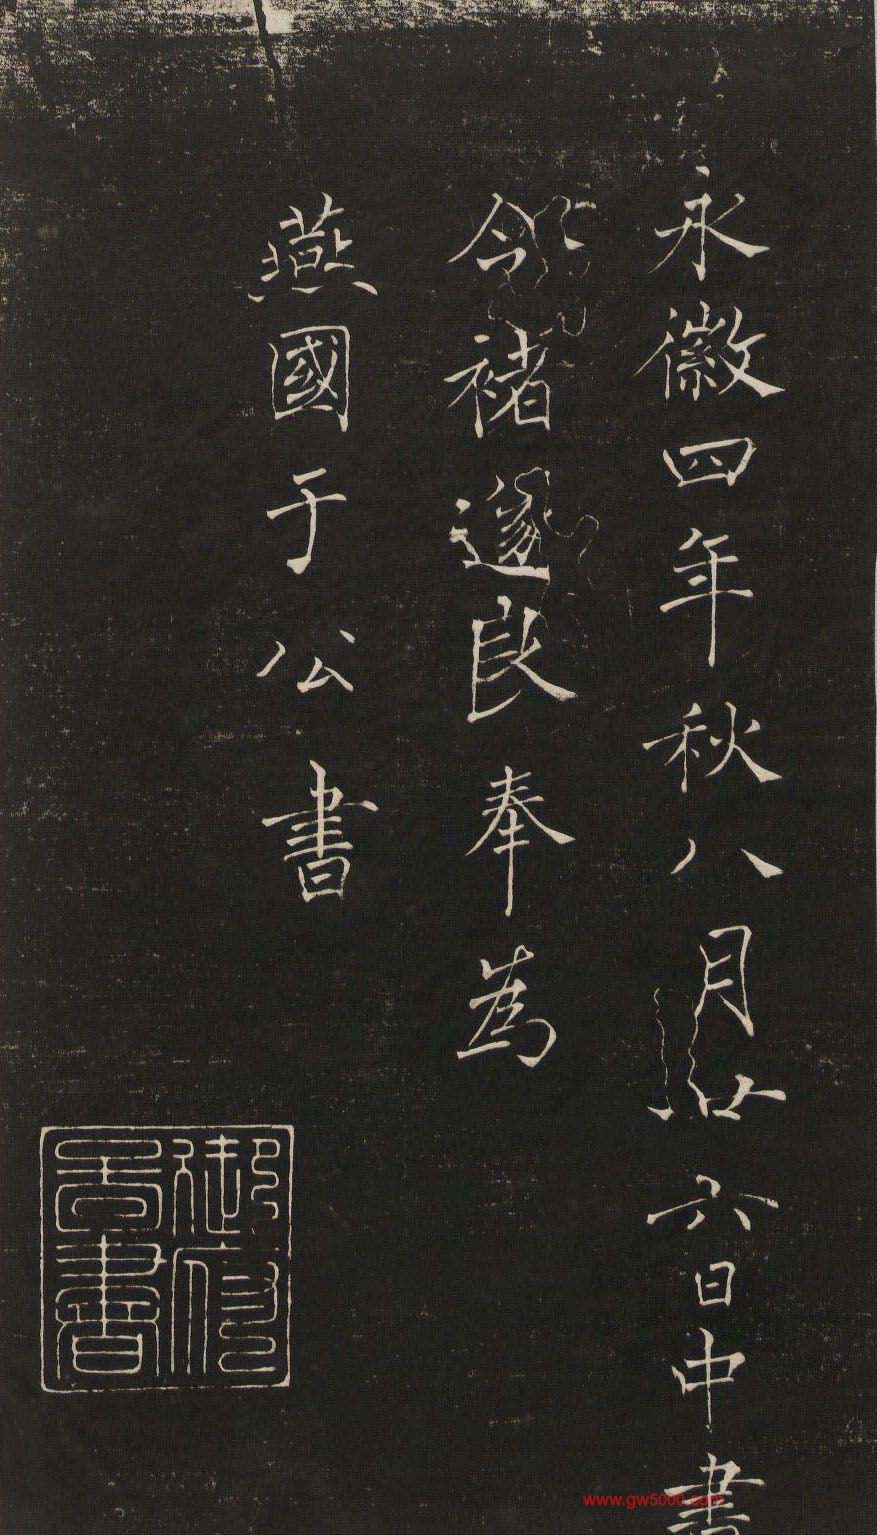 永徽四年秋八月廿六日中書
令褚遂良奉為
燕國于公書
www.gw5000.com